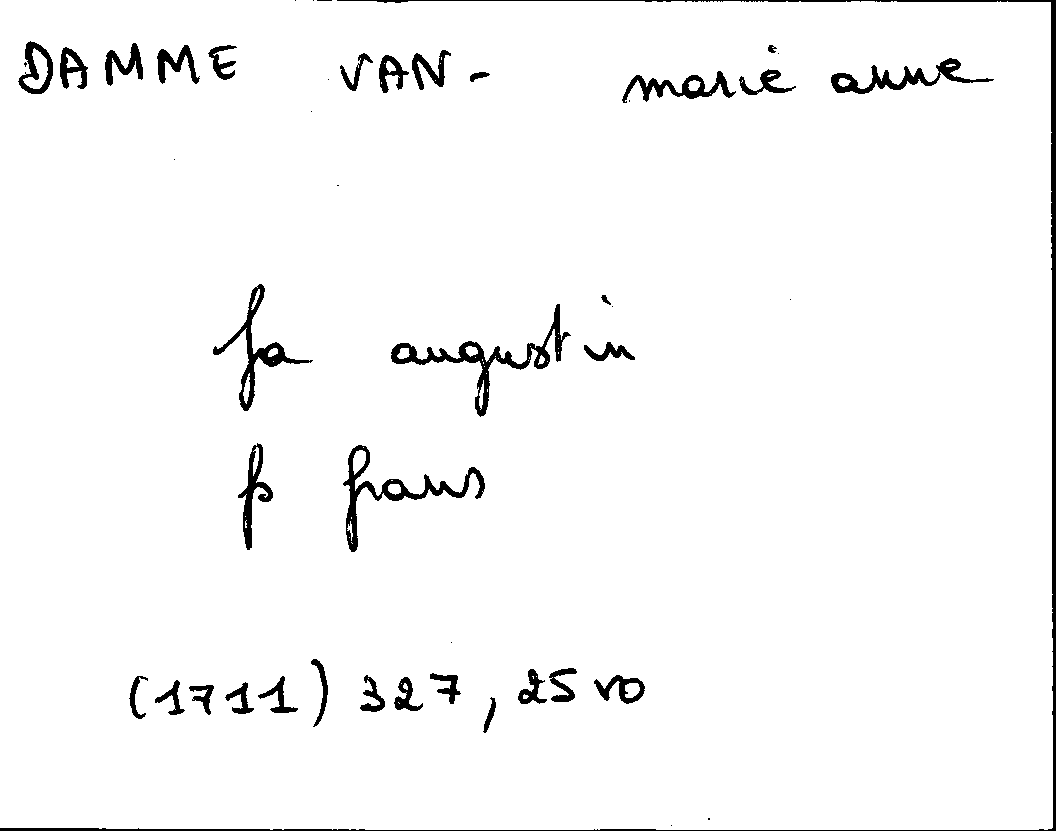 DAMME VAN- marie anne
fa augustin
fs frans
(1711) 327, 25 vo